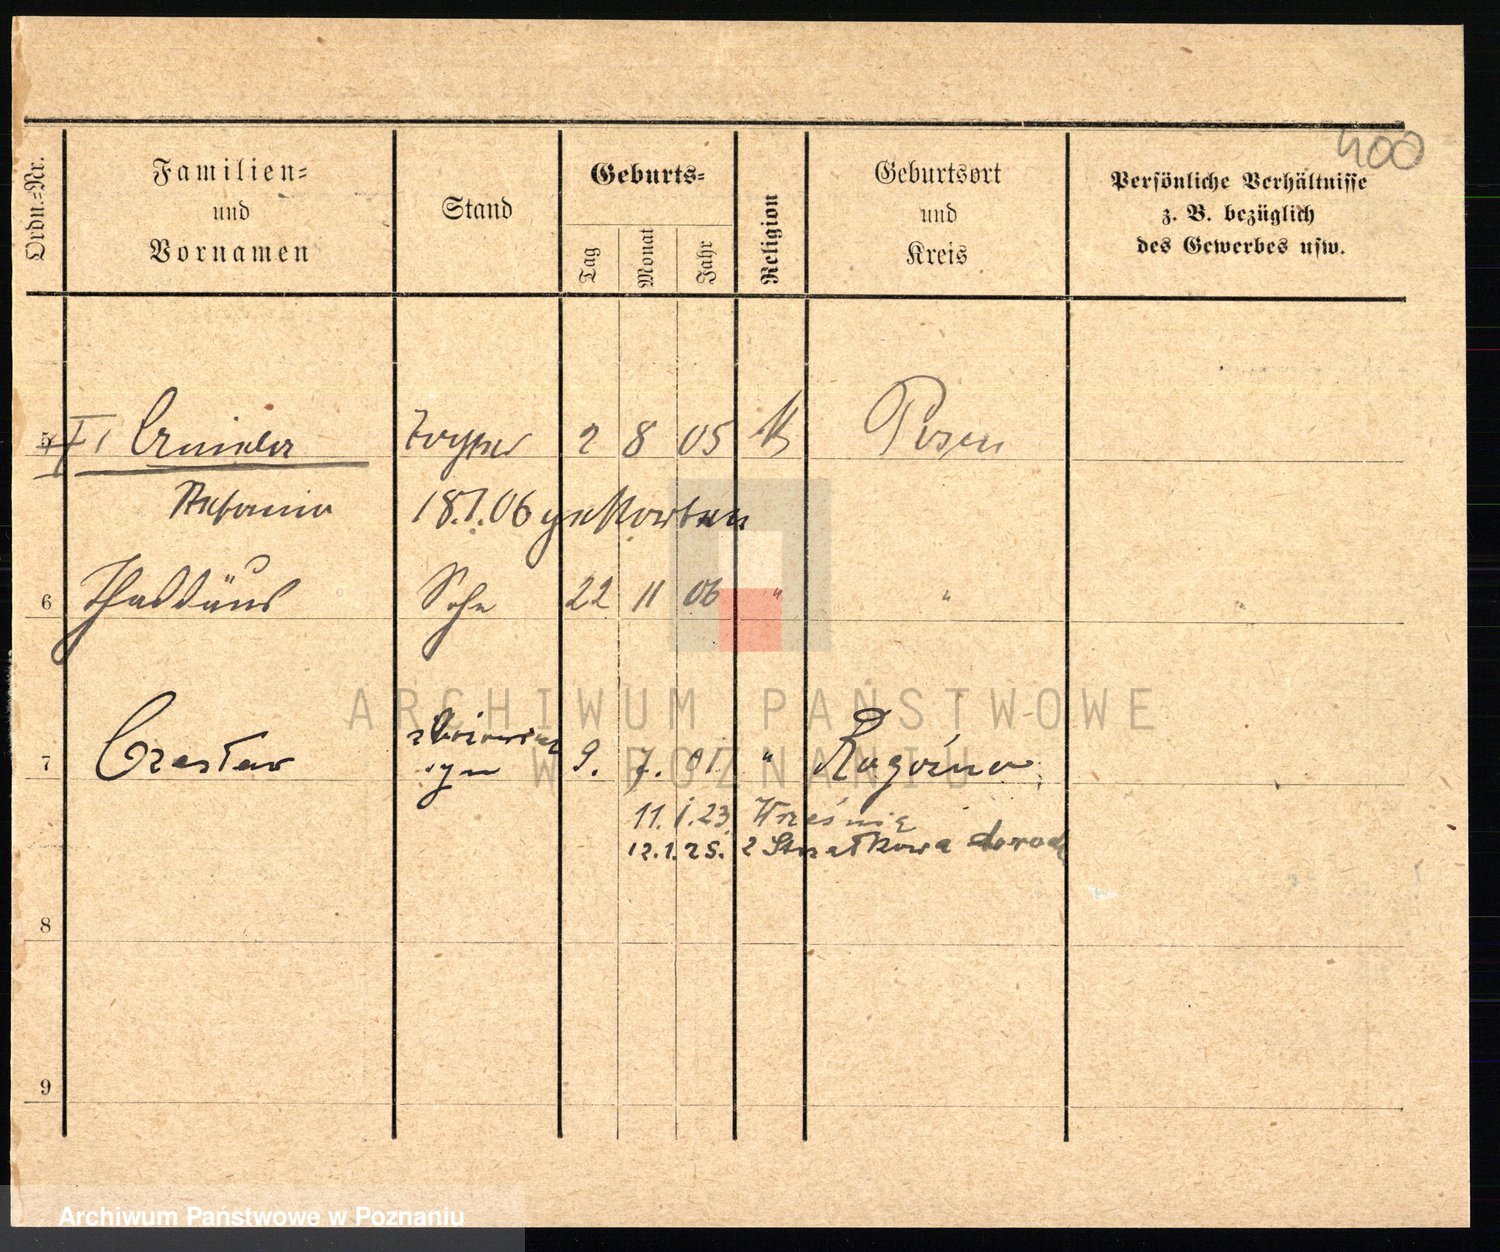 400
Ordn.=Nr.
Familien=
und
Vornamen
Stand
Geburts=
Tag
Monat
Jahr
Religion
Geburtsort
und
Kreis
Persönliche Verhältnisse
z. B. bezüglich
des Gewerbes usw.
5 Tochter 2 8 05 K Posen
18.7.06 gestorben
6 Thaddäus Sohn 22 11 06 " "
7 Czesław
syn 9. 7. 01 " Rogoźno
11.1.23 Września
12.1.25. 2
8
9
ARCHIWUM PAŃSTWOWE
W POZNANIU
Archiwum Państwowe w Poznaniu